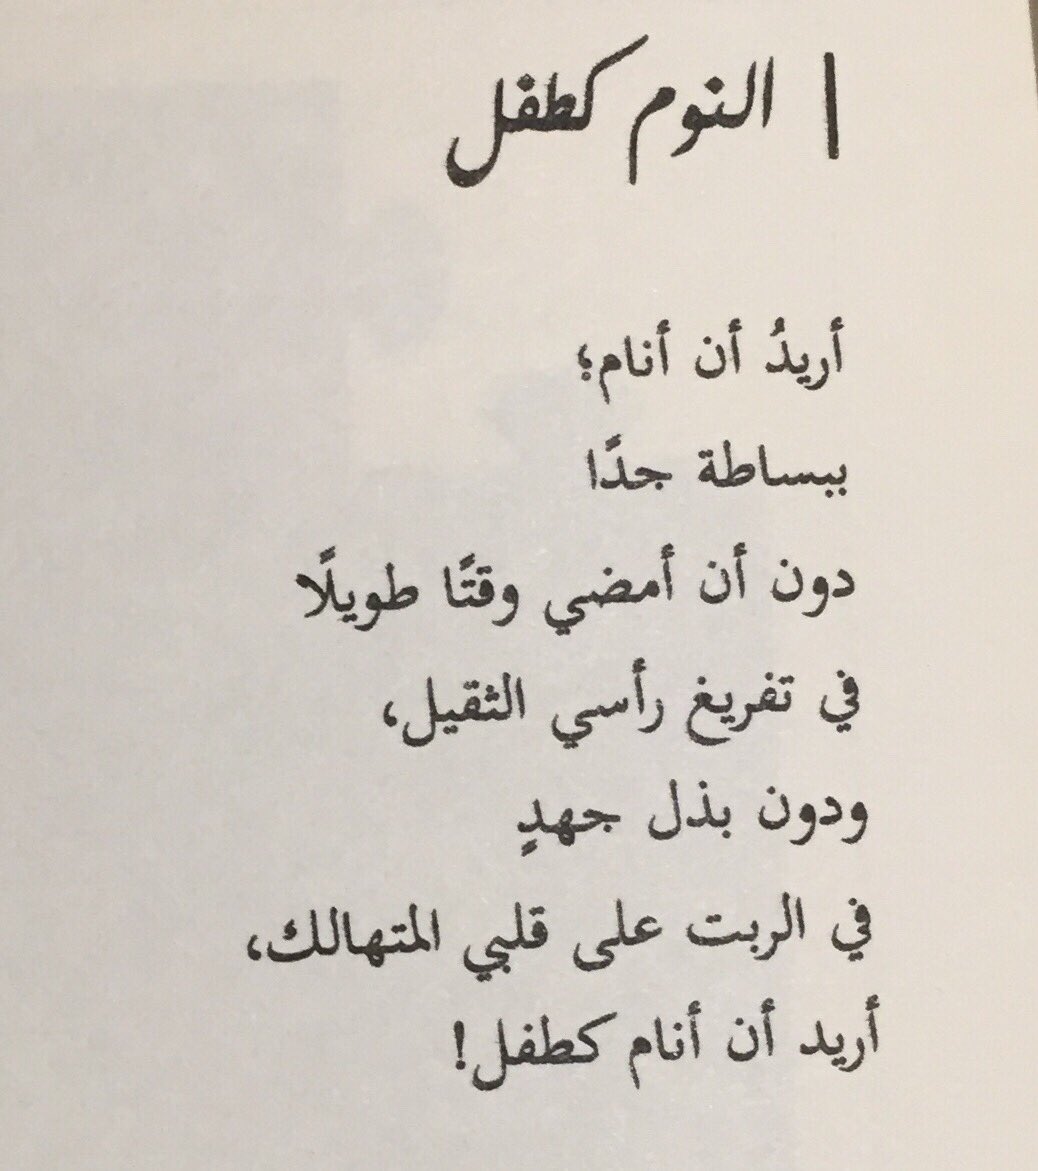 | النوم كطفل
أريدُ أن أنام؛
ببساطة جدًا
دون أن أمضي وقتًا طويلًا
في تفريغ رأسي الثقيل،
ودون بذل جهدٍ
في الربت على قلبي المتهالك،
أريد أن أنام كطفل!